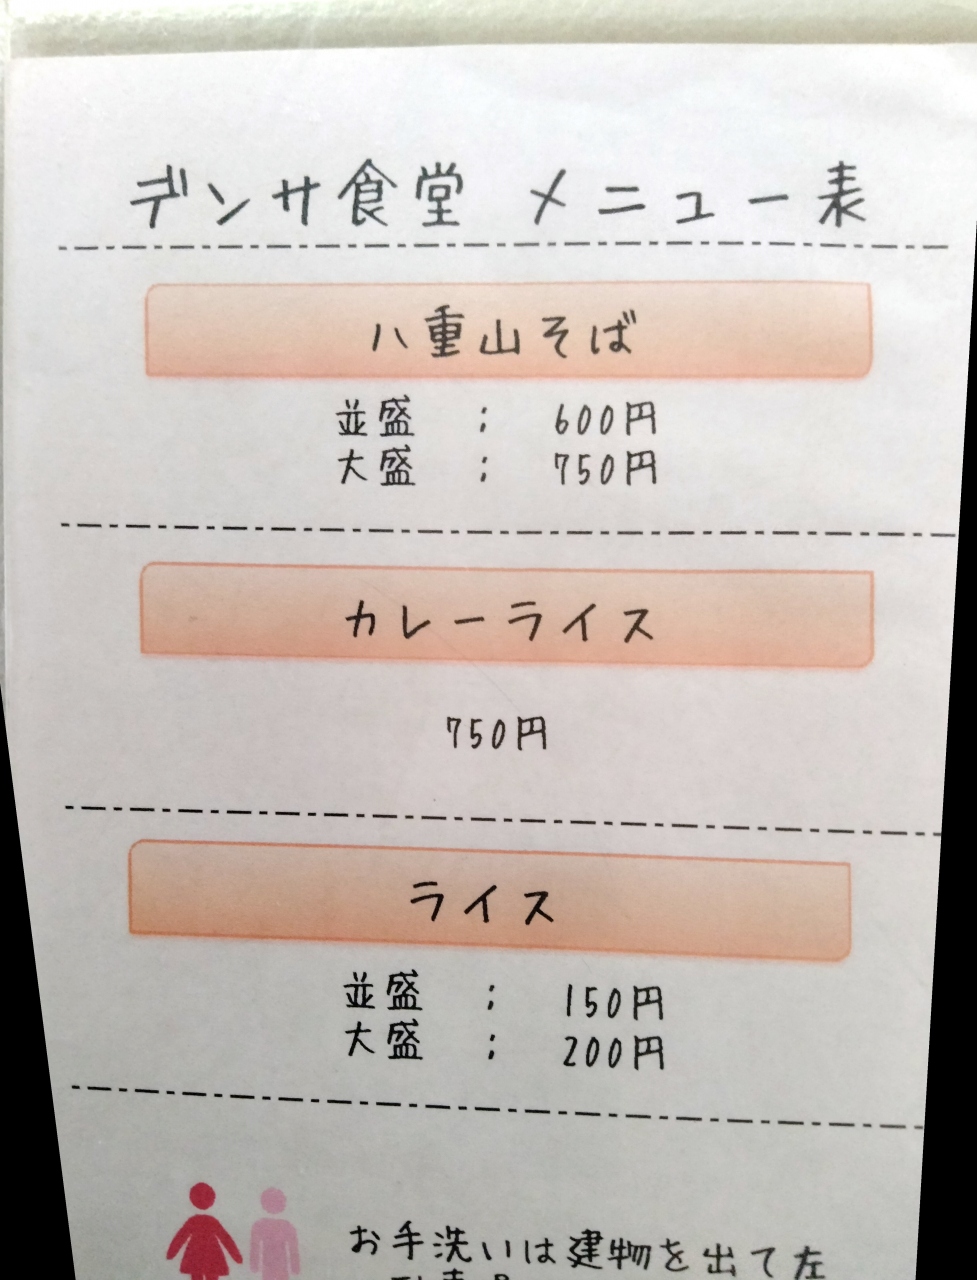 デンサ食堂 メニュー表
八重山そば
並盛 : 600円
大盛 : 750円
カレーライス
750円
ライス
並盛 : 150円
大盛 : 200円
お手洗いは建物を出て左